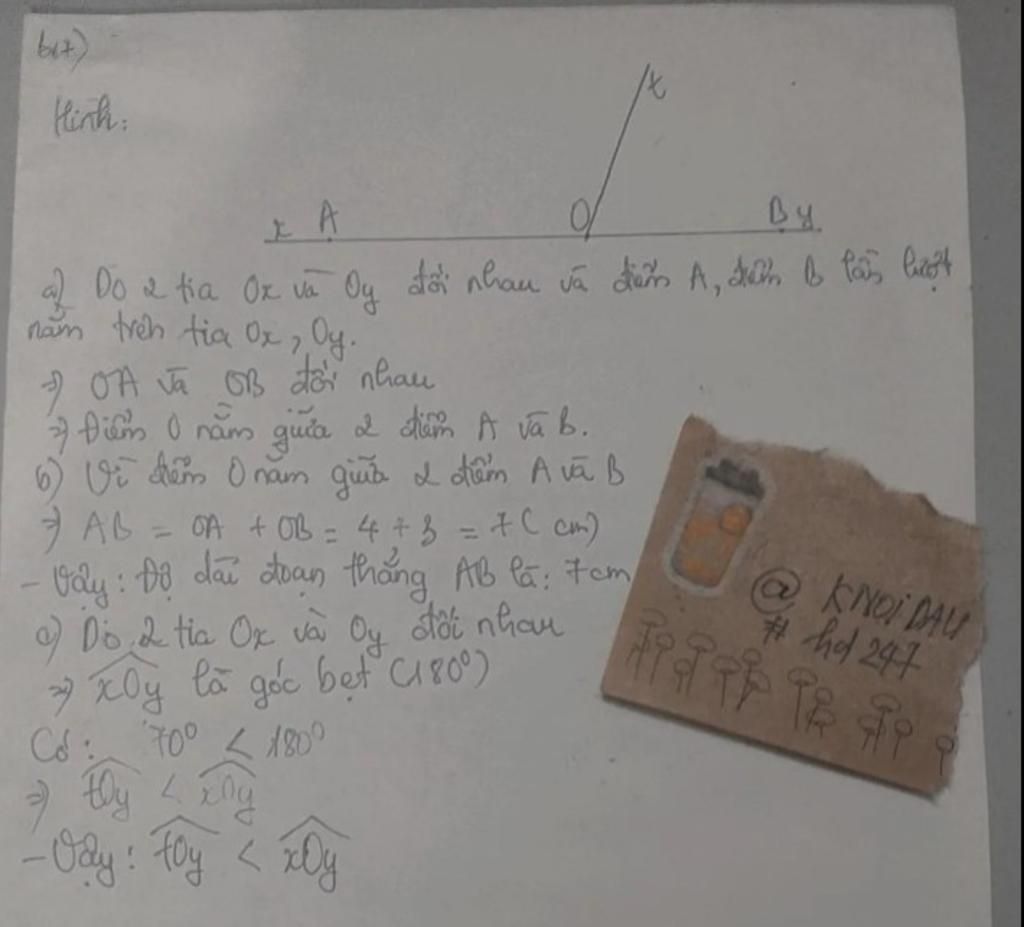 b17)
Hình:
t
x A O B y
a) Do 2 tia Ox và Oy đối nhau và điểm A, điểm B lần lượt
nằm trên tia Ox, Oy.
=> OA và OB đối nhau
=> Điểm O nằm giữa 2 điểm A và B.
b) Vì điểm O nằm giữa 2 điểm A và B
=> AB = OA + OB = 4 + 3 = 7 (cm)
- Vậy: Độ dài đoạn thẳng AB là: 7cm
c) Do 2 tia Ox và Oy đối nhau
=> xOy là góc bẹt (180°)
Có: 70° < 180°
=> tOy < xOy
- Vậy: tOy < xOy
@ KNOiDAU
# hd 247